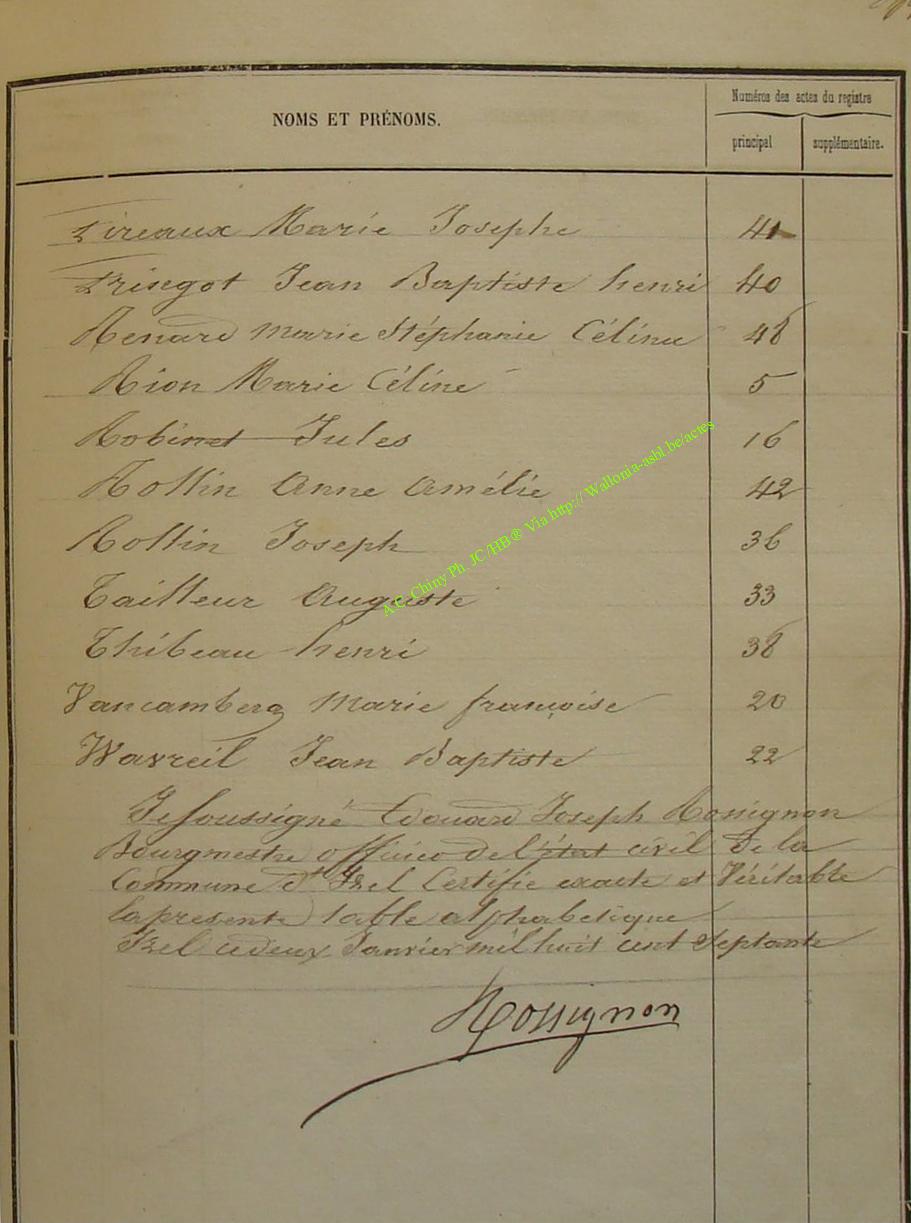 Numéros des actes du registre
NOMS ET PRÉNOMS.
principal
supplémentaire.
Pireaux Marie Josephe 41
Prisegot Jean Baptiste henri 40
Renard Marie Stéphanie Célina 48
Rion Marie Céline 5
Robinet Jules 16
Rollin Anne Amélie 42
Rollin Joseph 36
Tailleur Auguste 33
Thibeau henri 38
Vancamberg Marie françoise 20
Wavreil Jean Baptiste 22
Je soussigné Edouard Joseph Rossignon
Bourgmestre officier de l'état civil de la
Commune d' Izel Certifie exacte et Véritable
la presente table alphabetique
Izel ce deux Janvier mil huit cent Septante
Rossignon
A.C. Chiny Ph JC/HB® Via http:// Wallonia-asbl.be/actes